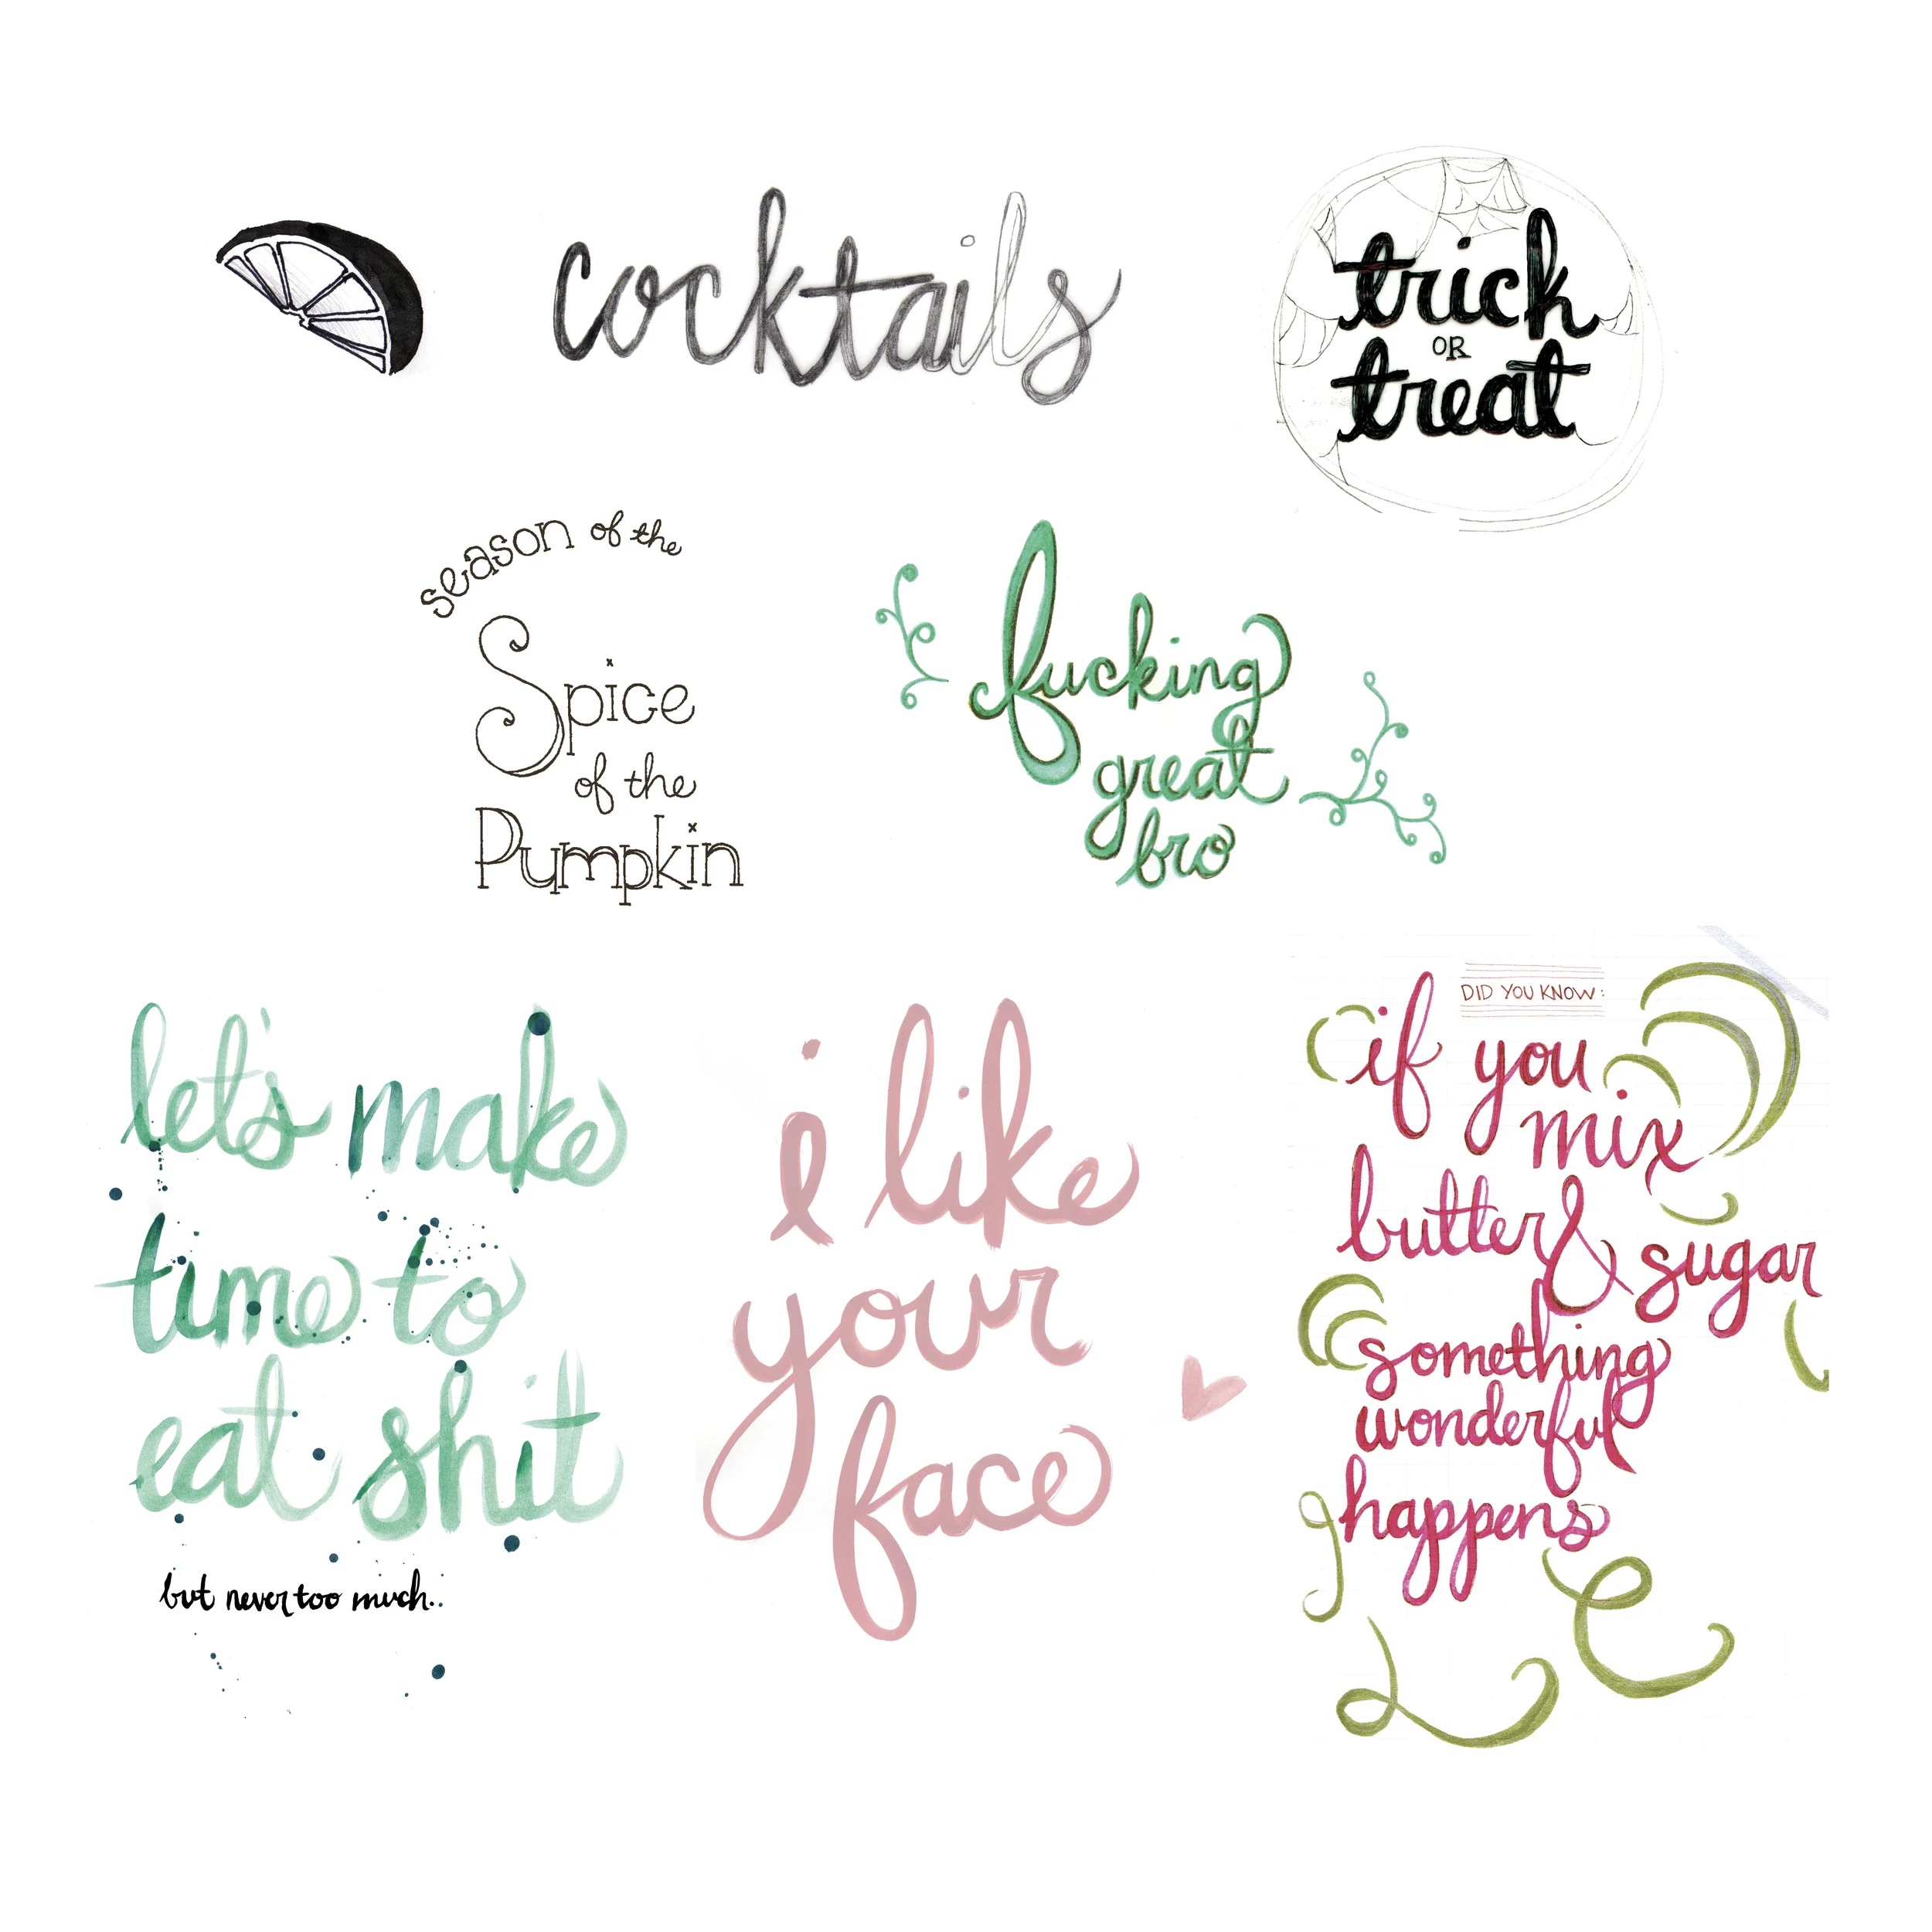 cocktails
trick
OR
treat
season of the
Spice
of the
Pumpkin
fucking
great
bro
let's make
time to
eat shit
but never too much..
i like
your
face
DID YOU KNOW:
if you
mix
butter & sugar
something
wonderful
happens